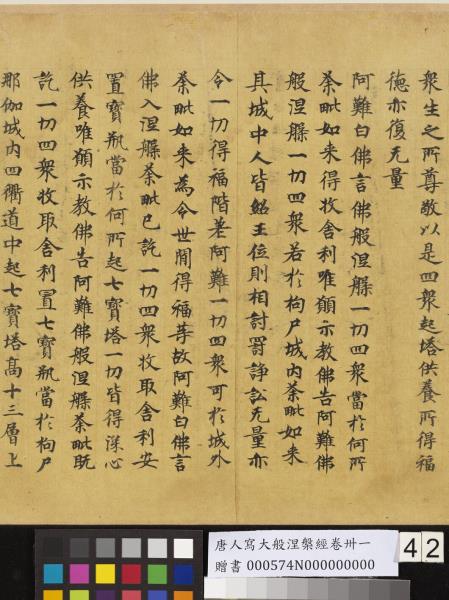 衆生之所尊敬以是四衆起塔供養所得福
德亦復无量
阿難白佛言佛般涅槃一切四衆當於何所
荼毗如来得收舍利唯願示教佛告阿難佛
般涅槃一切四衆若於拘尸城内荼毗如来
其城中人皆紹王位則相討罸諍訟无量亦
令一切得福階差阿難一切四衆可於城外
荼毗如来為令世間得福等故阿難白佛言
佛入涅槃荼毗已訖一切四衆收取舍利安
置寶瓶當於何所起七寶塔一切皆得深心
供養唯願示教佛告阿難佛般涅槃荼毗既
訖一切四衆收取舍利置七寶瓶當於拘尸
那伽城内四衢道中起七寶塔高十三層上
唐人寫大般涅槃經卷卅一
贈書 000574N000000000
42